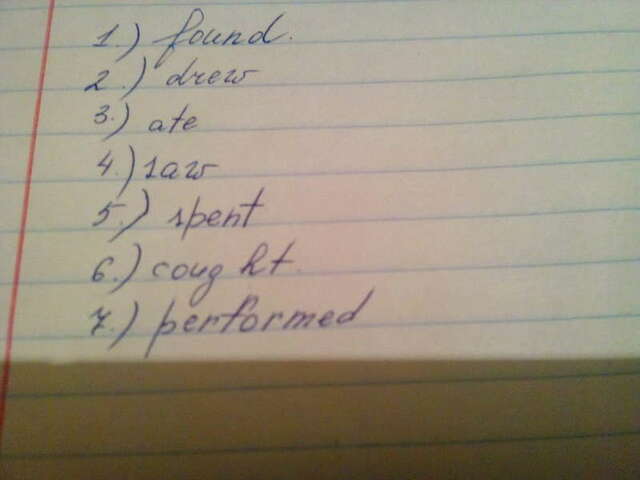 1.) found.
2.) drew
3.) ate
4.) saw
5.) spent
6.) coug ht.
7.) performed